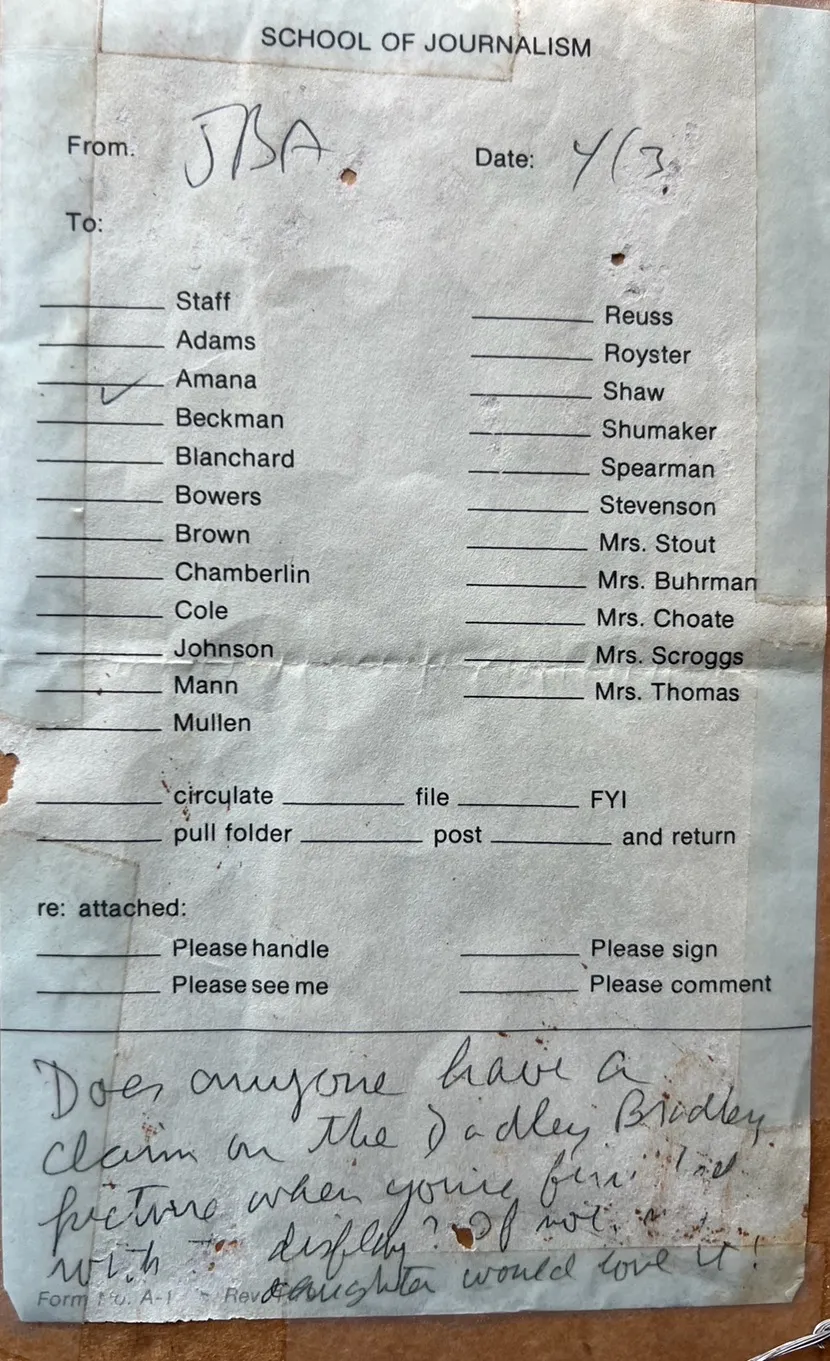 SCHOOL OF JOURNALISM
From. JBA.
Date: 4/3
To:
Staff
Adams
Amana
Beckman
Blanchard
Bowers
Brown
Chamberlin
Cole
Johnson
Mann
Mullen
Reuss
Royster
Shaw
Shumaker
Spearman
Stevenson
Mrs. Stout
Mrs. Buhrman
Mrs. Choate
Mrs. Scroggs
Mrs. Thomas
circulate file FYI
pull folder post and return
re: attached:
Please handle Please sign
Please see me Please comment
Does anyone have a
claim on the Bradley
picture when you're
with display? If not,
daughter would love it!
Form No. A-1 Rev